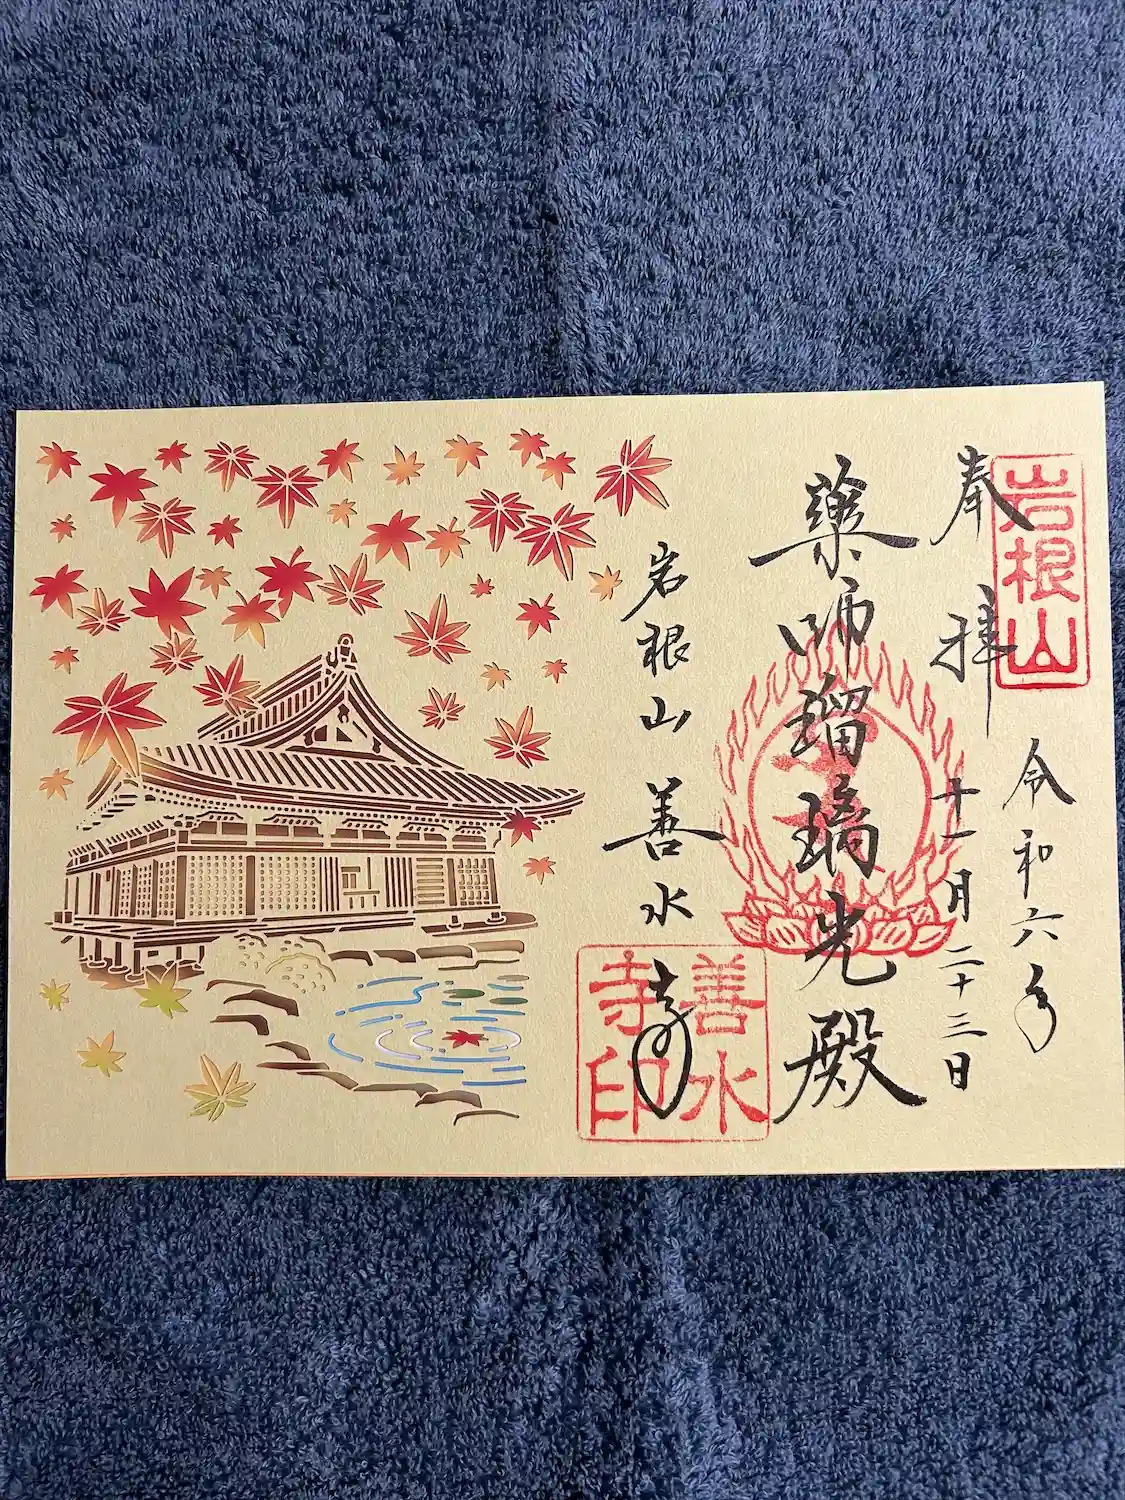 岩根山
奉拝
令和六年
十一月二十三日
薬師瑠璃光殿
岩根山 善水寺
善水
寺印